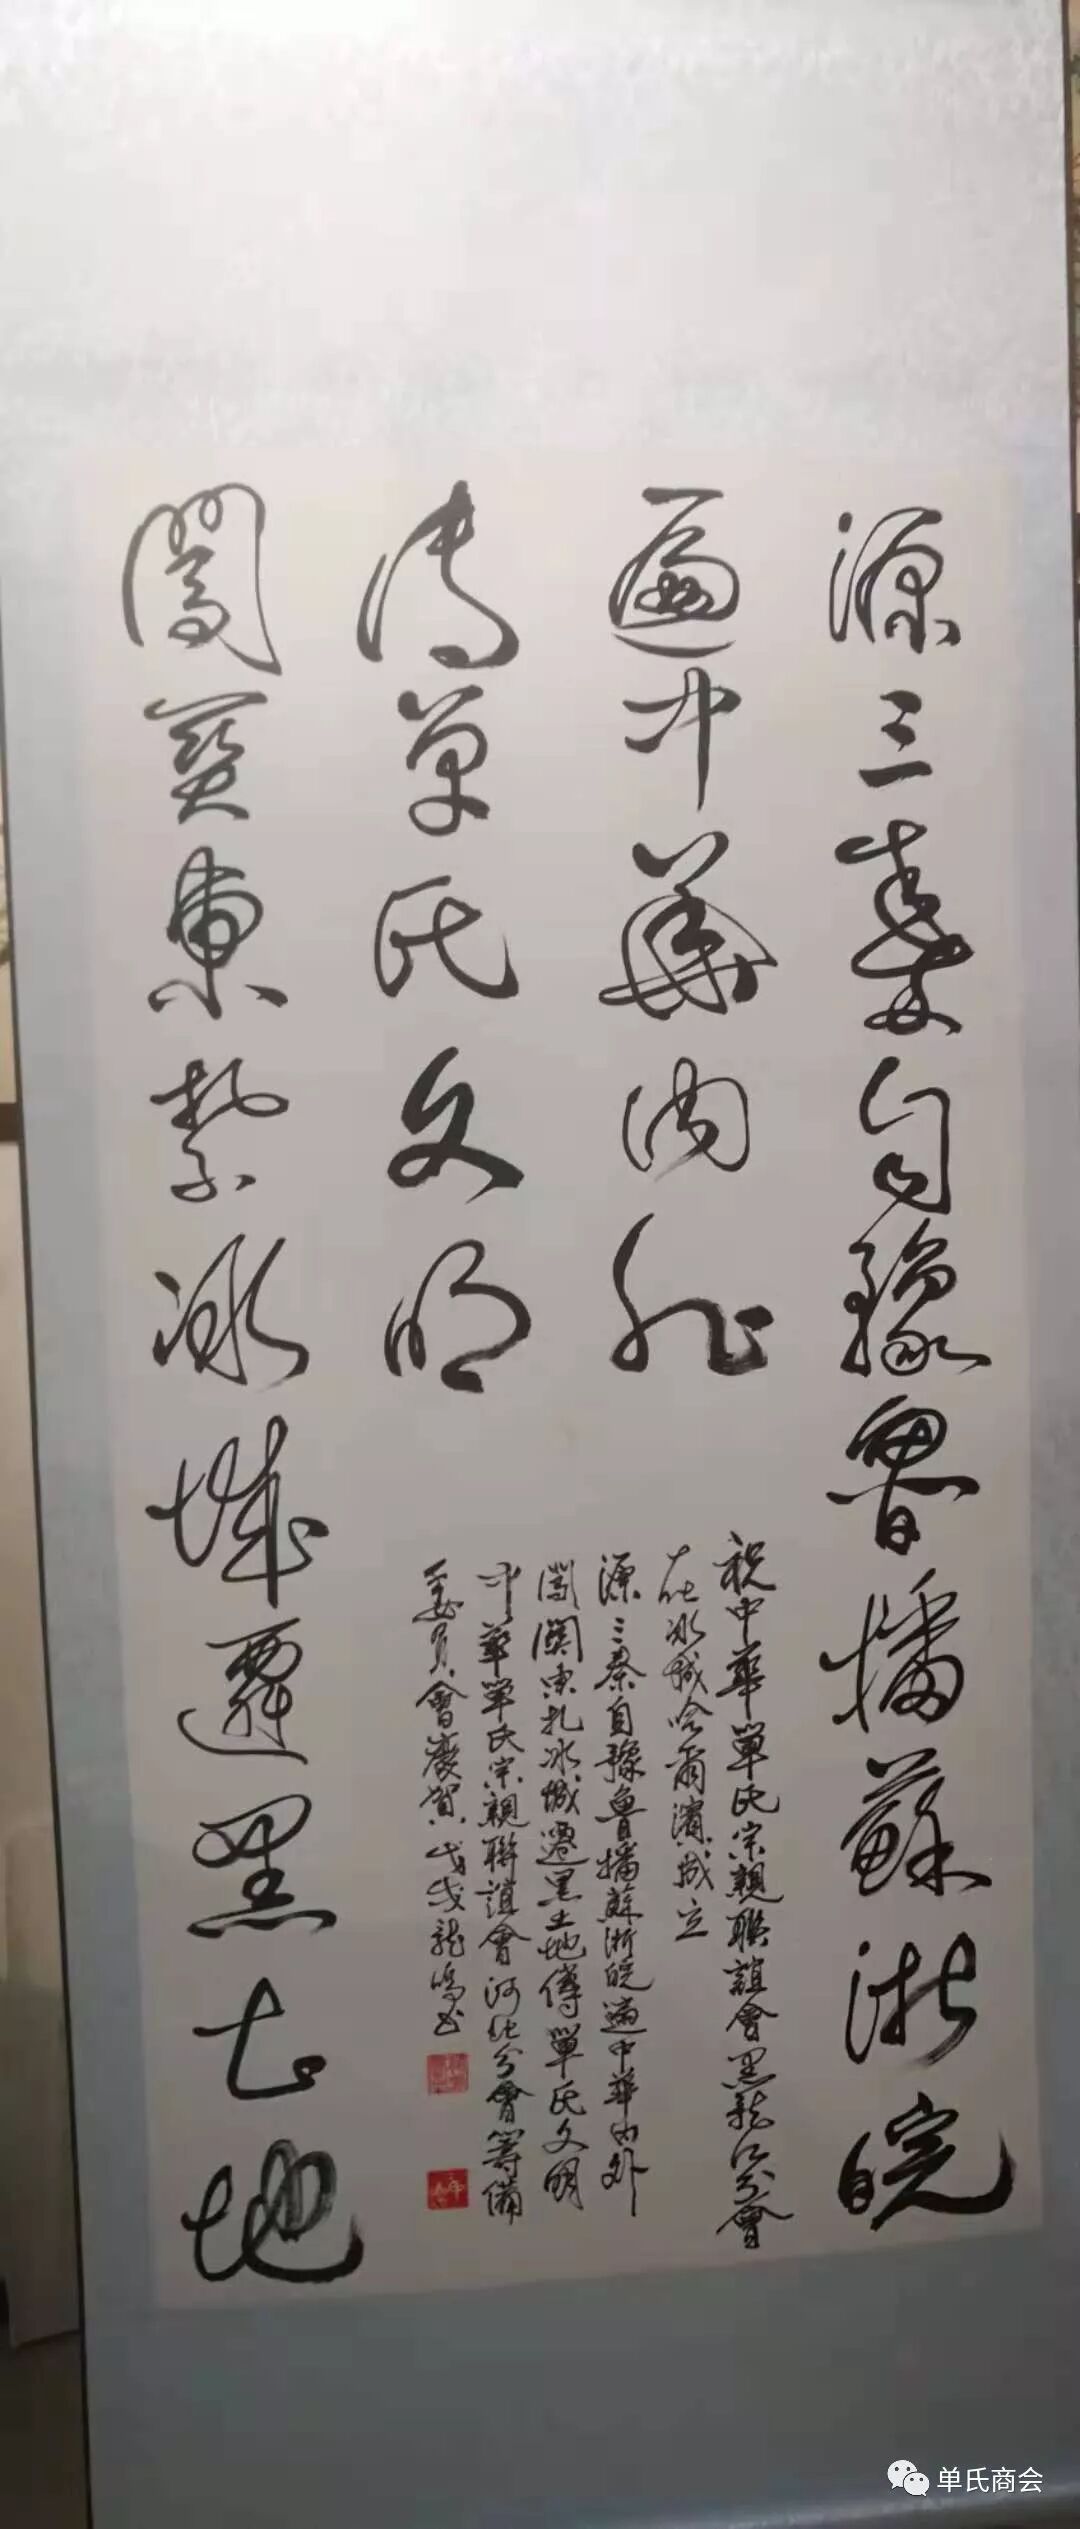 源三秦自豫魯播蘇浙皖
遍中華內外
闖關東紮冰城遷黑土地
傳單氏文明
祝中華單氏宗親聯誼會黑龍江分會
在冰城哈爾濱成立
源三秦自豫魯播蘇浙皖遍中華內外
闖關東扎冰城遷黑土地傳單氏文明
中華單氏宗親聯誼會河北分會籌備
委員會慶賀戊戌龍鳴書
单氏商会